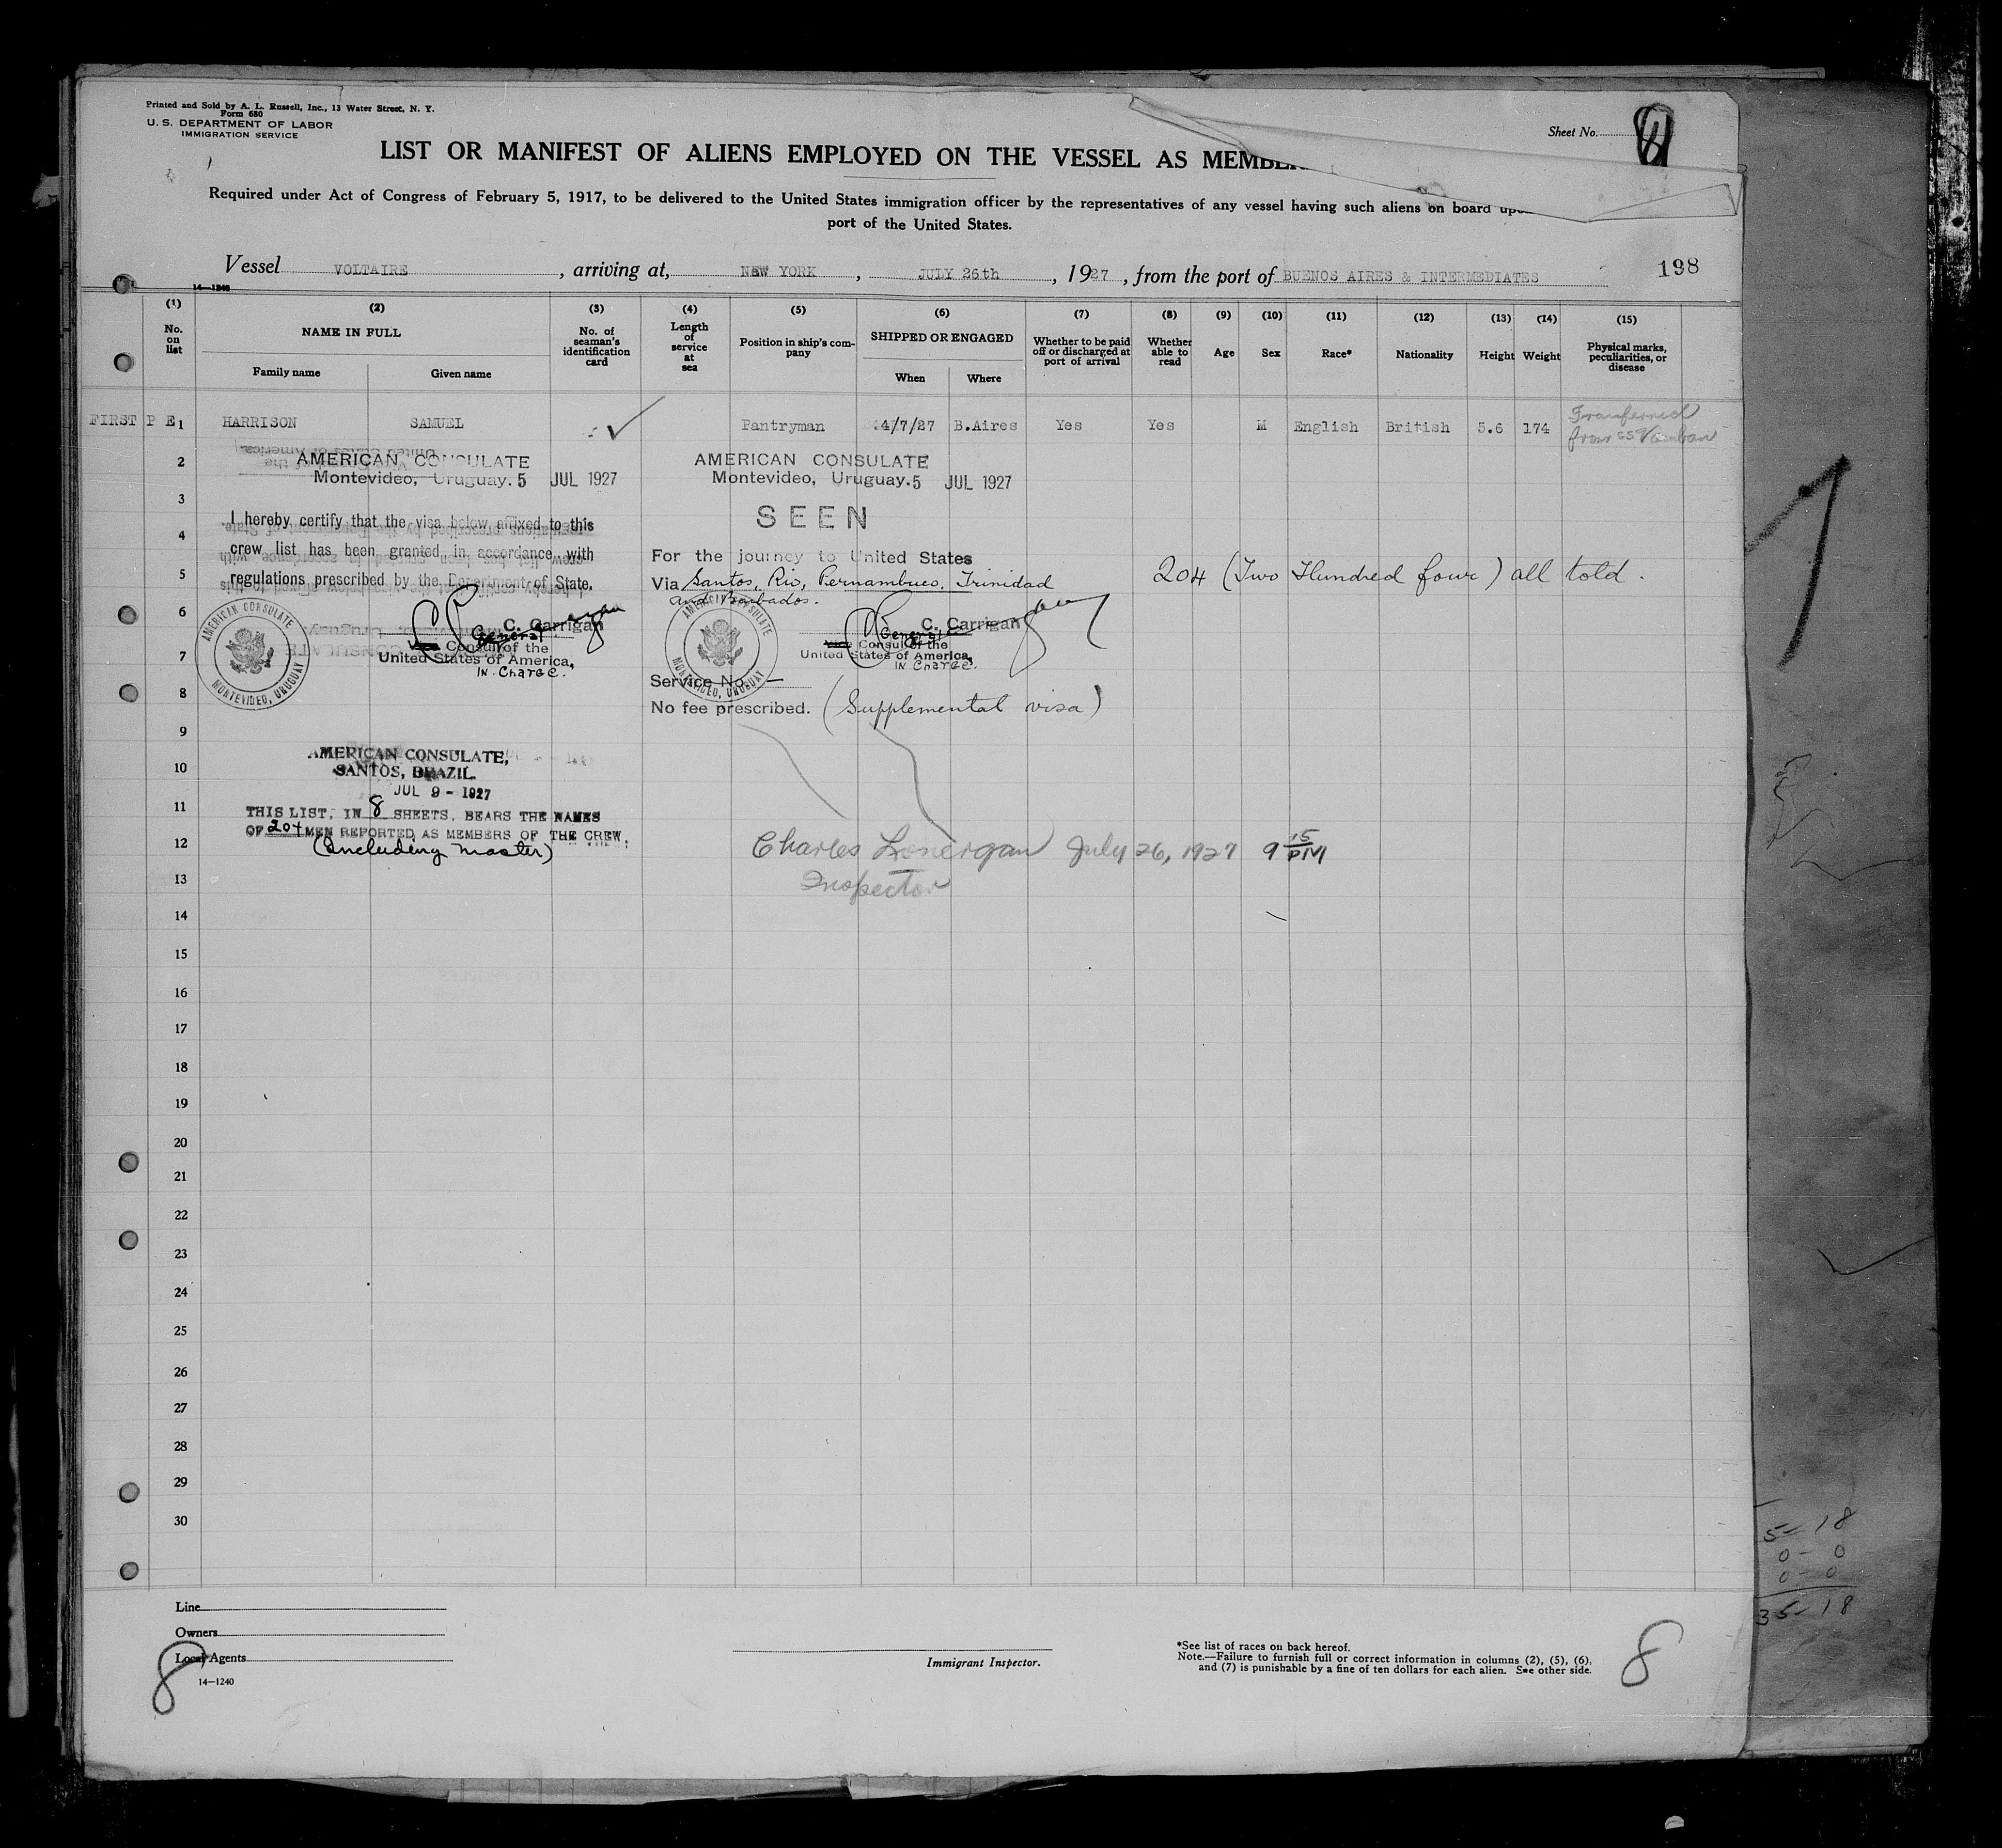 Printed and Sold by A. L. Russell, Inc., 13 Water Street, N. Y.
Form 680
U. S. DEPARTMENT OF LABOR
IMMIGRATION SERVICE
Sheet No.
LIST OR MANIFEST OF ALIENS EMPLOYED ON THE VESSEL AS
Required under Act of Congress of February 5, 1917, to be delivered to the United States immigration officer by the representatives of any vessel having such aliens on board
port of the United States.
Vessel VOLTAIRE, arriving at, NEW YORK, JULY 26th, 1927, from the port of BUENOS AIRES & INTERMEDIATES 198
14—1240
(1) (2) (3) (4) (5) (6) (7) (8) (9) (10) (11) (12) (13) (14) (15)
No. on list
NAME IN FULL
Family name Given name
No. of seaman's identification card
Length of service at sea
Position in ship's company
SHIPPED OR ENGAGED
When Where
Whether to be paid off or discharged at port of arrival
Whether able to read
Age
Sex
Race*
Nationality
Height
Weight
Physical marks, peculiarities, or disease
FIRST P E 1 HARRISON SAMUEL Pantryman 4/7/27 B.Aires Yes Yes M English British 5.6 174 Transferred from SS Vauban
2
AMERICAN CONSULATE
Montevideo, Uruguay. 5 JUL 1927
AMERICAN CONSULATE
Montevideo, Uruguay. 5 JUL 1927
3
I hereby certify that the visa below affixed to this
4
crew list has been granted in accordance with
5
regulations prescribed by the Department of State.
SEEN
For the journey to United States
Via Santos, Rio, Pernambuco, Trinidad
and Barbados.
204 (Two Hundred four) all told.
6
AMERICAN CONSULATE
MONTEVIDEO, URUGUAY
C. Carrigan
General
Vice Consul of the
United States of America,
IN Charge.
AMERICAN CONSULATE
MONTEVIDEO, URUGUAY
C. Carrigan
General
Vice Consul of the
United States of America,
IN Charge.
7
Service No. —
8
No fee prescribed. (Supplemental visa)
9
AMERICAN CONSULATE,
10
SANTOS, BRAZIL.
JUL 9 - 1927
11
THIS LIST, IN 8 SHEETS, BEARS THE NAMES
OF 204 MEN REPORTED AS MEMBERS OF THE CREW.
(Including master)
12
Charles Lonergan July 26, 1927 9 15 PM
Inspector
13
14
15
16
17
18
19
20
21
22
23
24
25
26
27
28
29
30
5-18
0-0
0-0
35-18
Line
Owners
Local Agents
14—1240
8
Immigrant Inspector.
*See list of races on back hereof.
Note.—Failure to furnish full or correct information in columns (2), (5), (6),
and (7) is punishable by a fine of ten dollars for each alien. See other side.
8